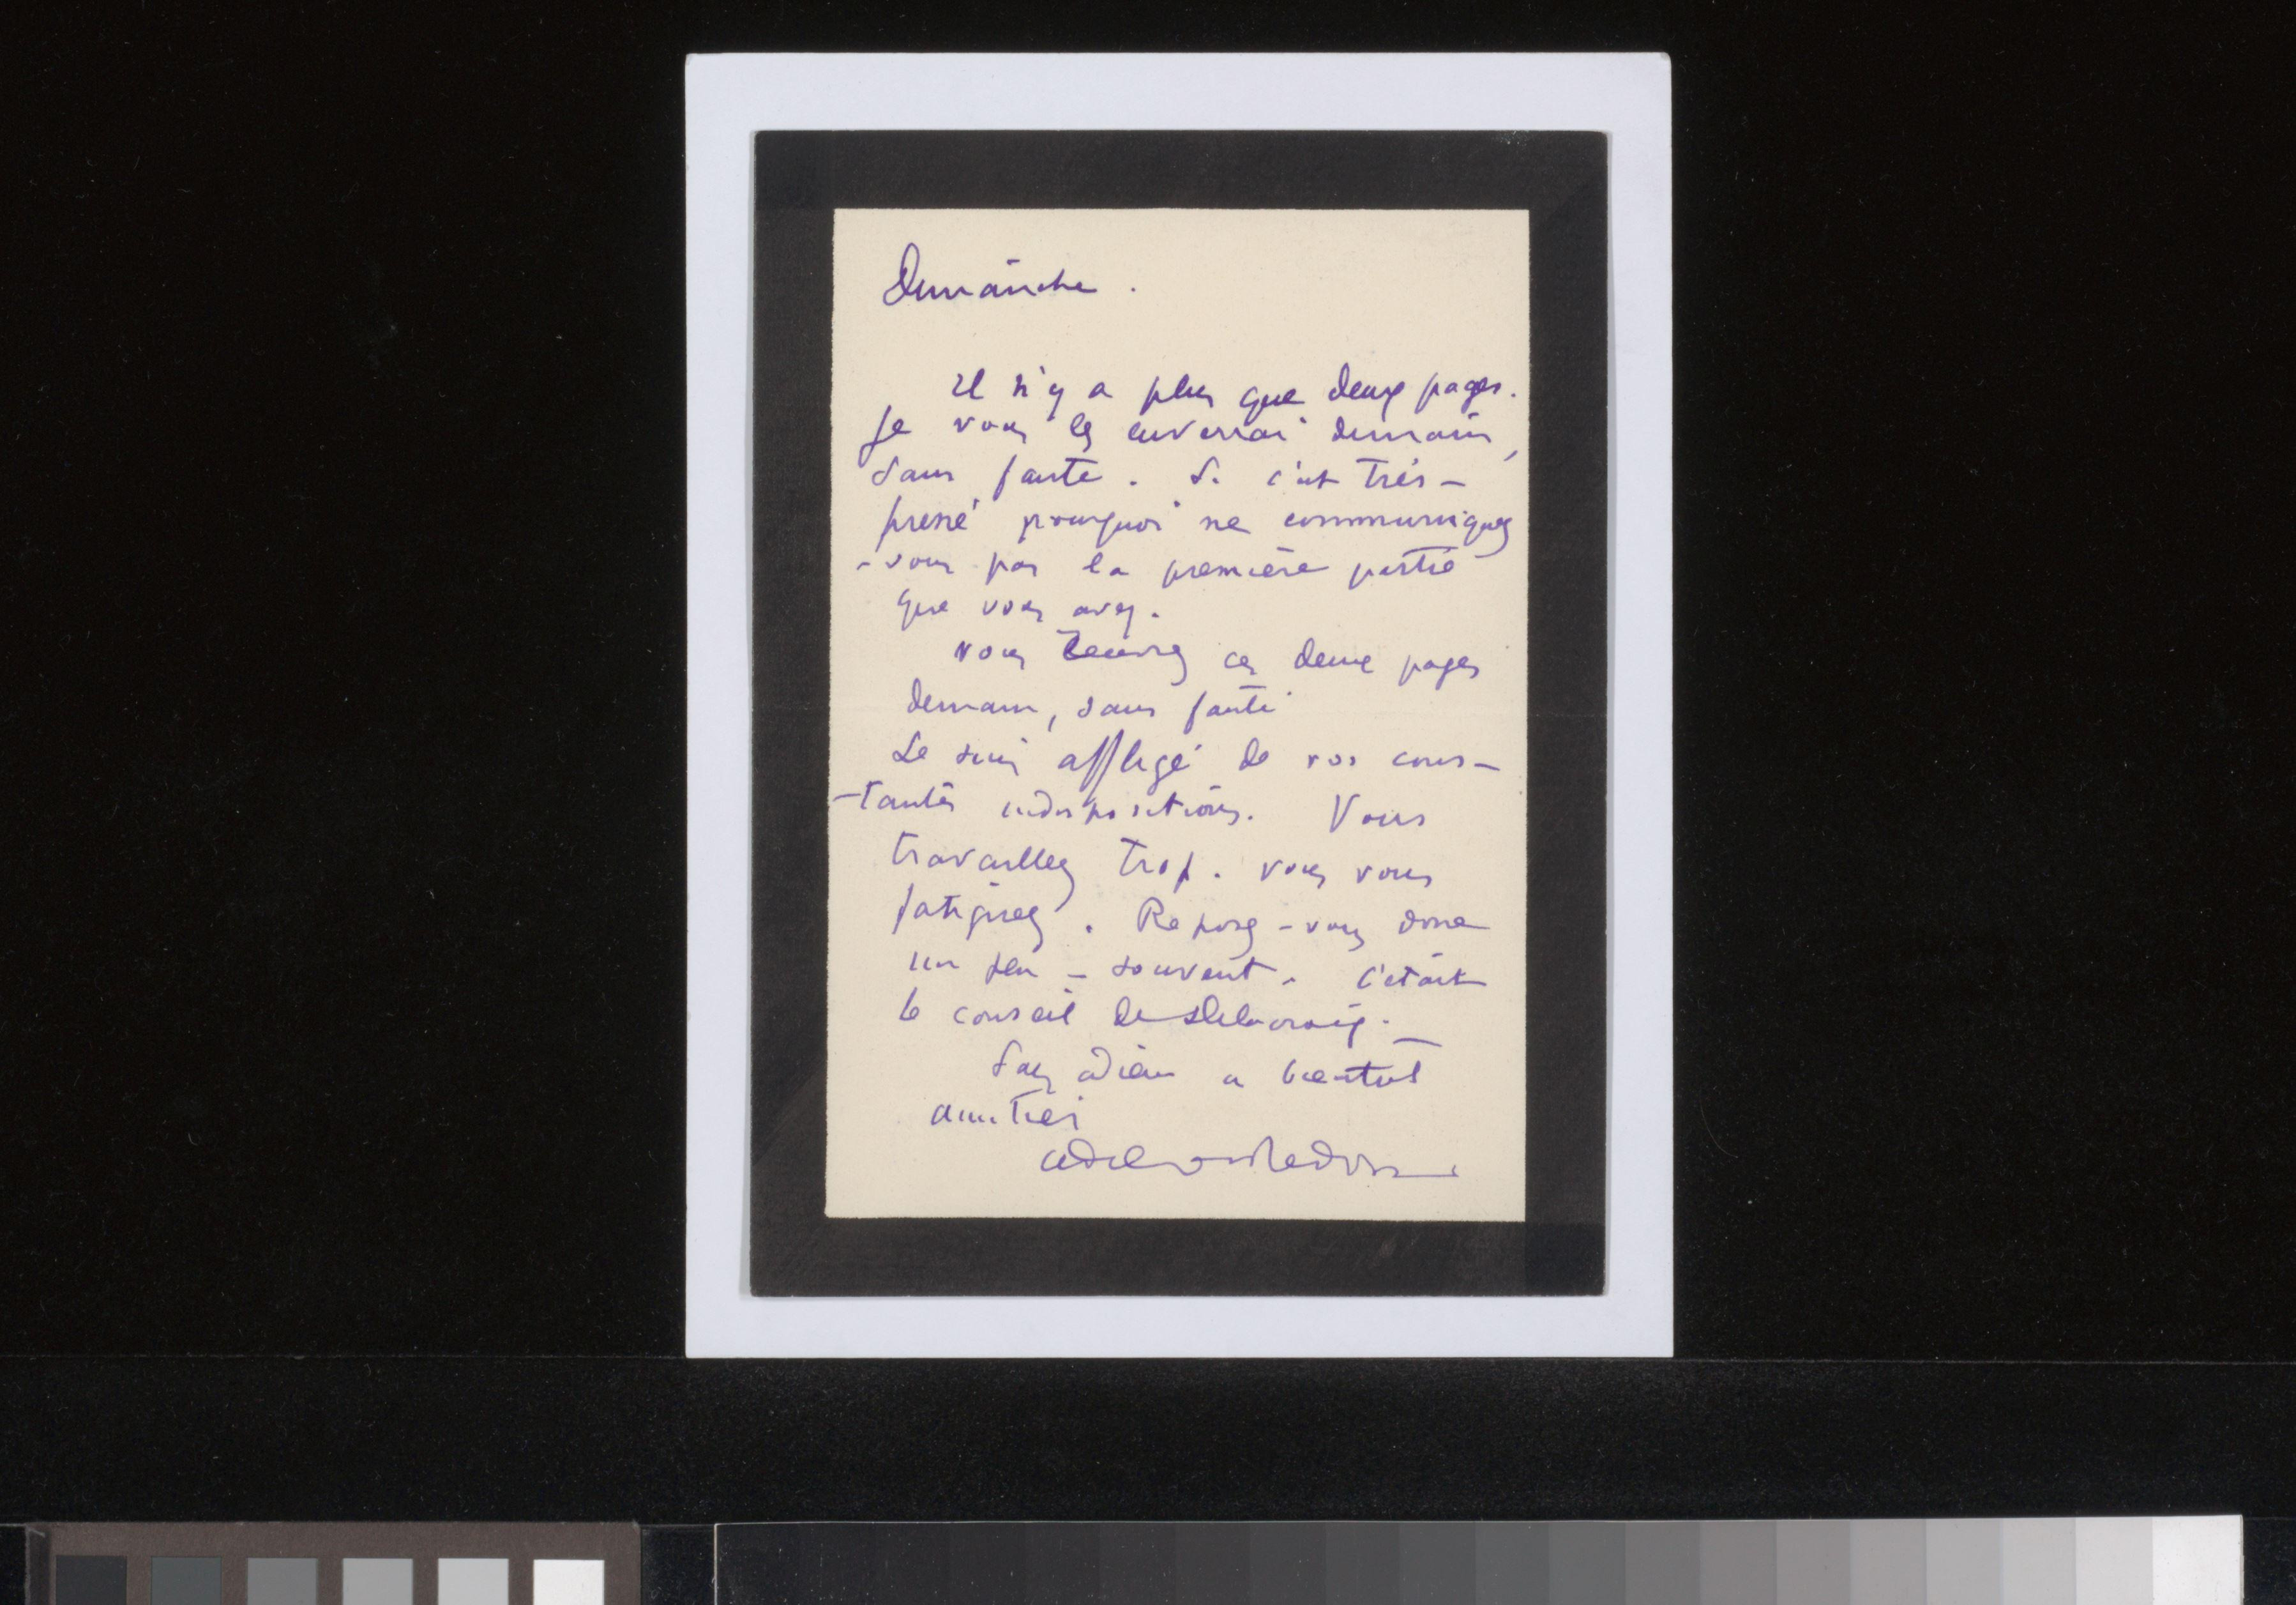 Dimanche.
Il n'y a plus que deux pages.
Je vous les enverrai demain,
sans faute. Si c'est très-
pressé pourquoi ne communiquez
-vous pas la première partie
que vous avez.
Vous recevrez ces deux pages
demain, sans faute
Je suis affligé de vos cons-
-tantes indispositions. Vous
travaillez trop. vous vous
fatiguez. Reposez-vous donc
un peu - souvent. C'était
le conseil de Delacroix.
adieu a bientot
amitiés
Odilon Redon